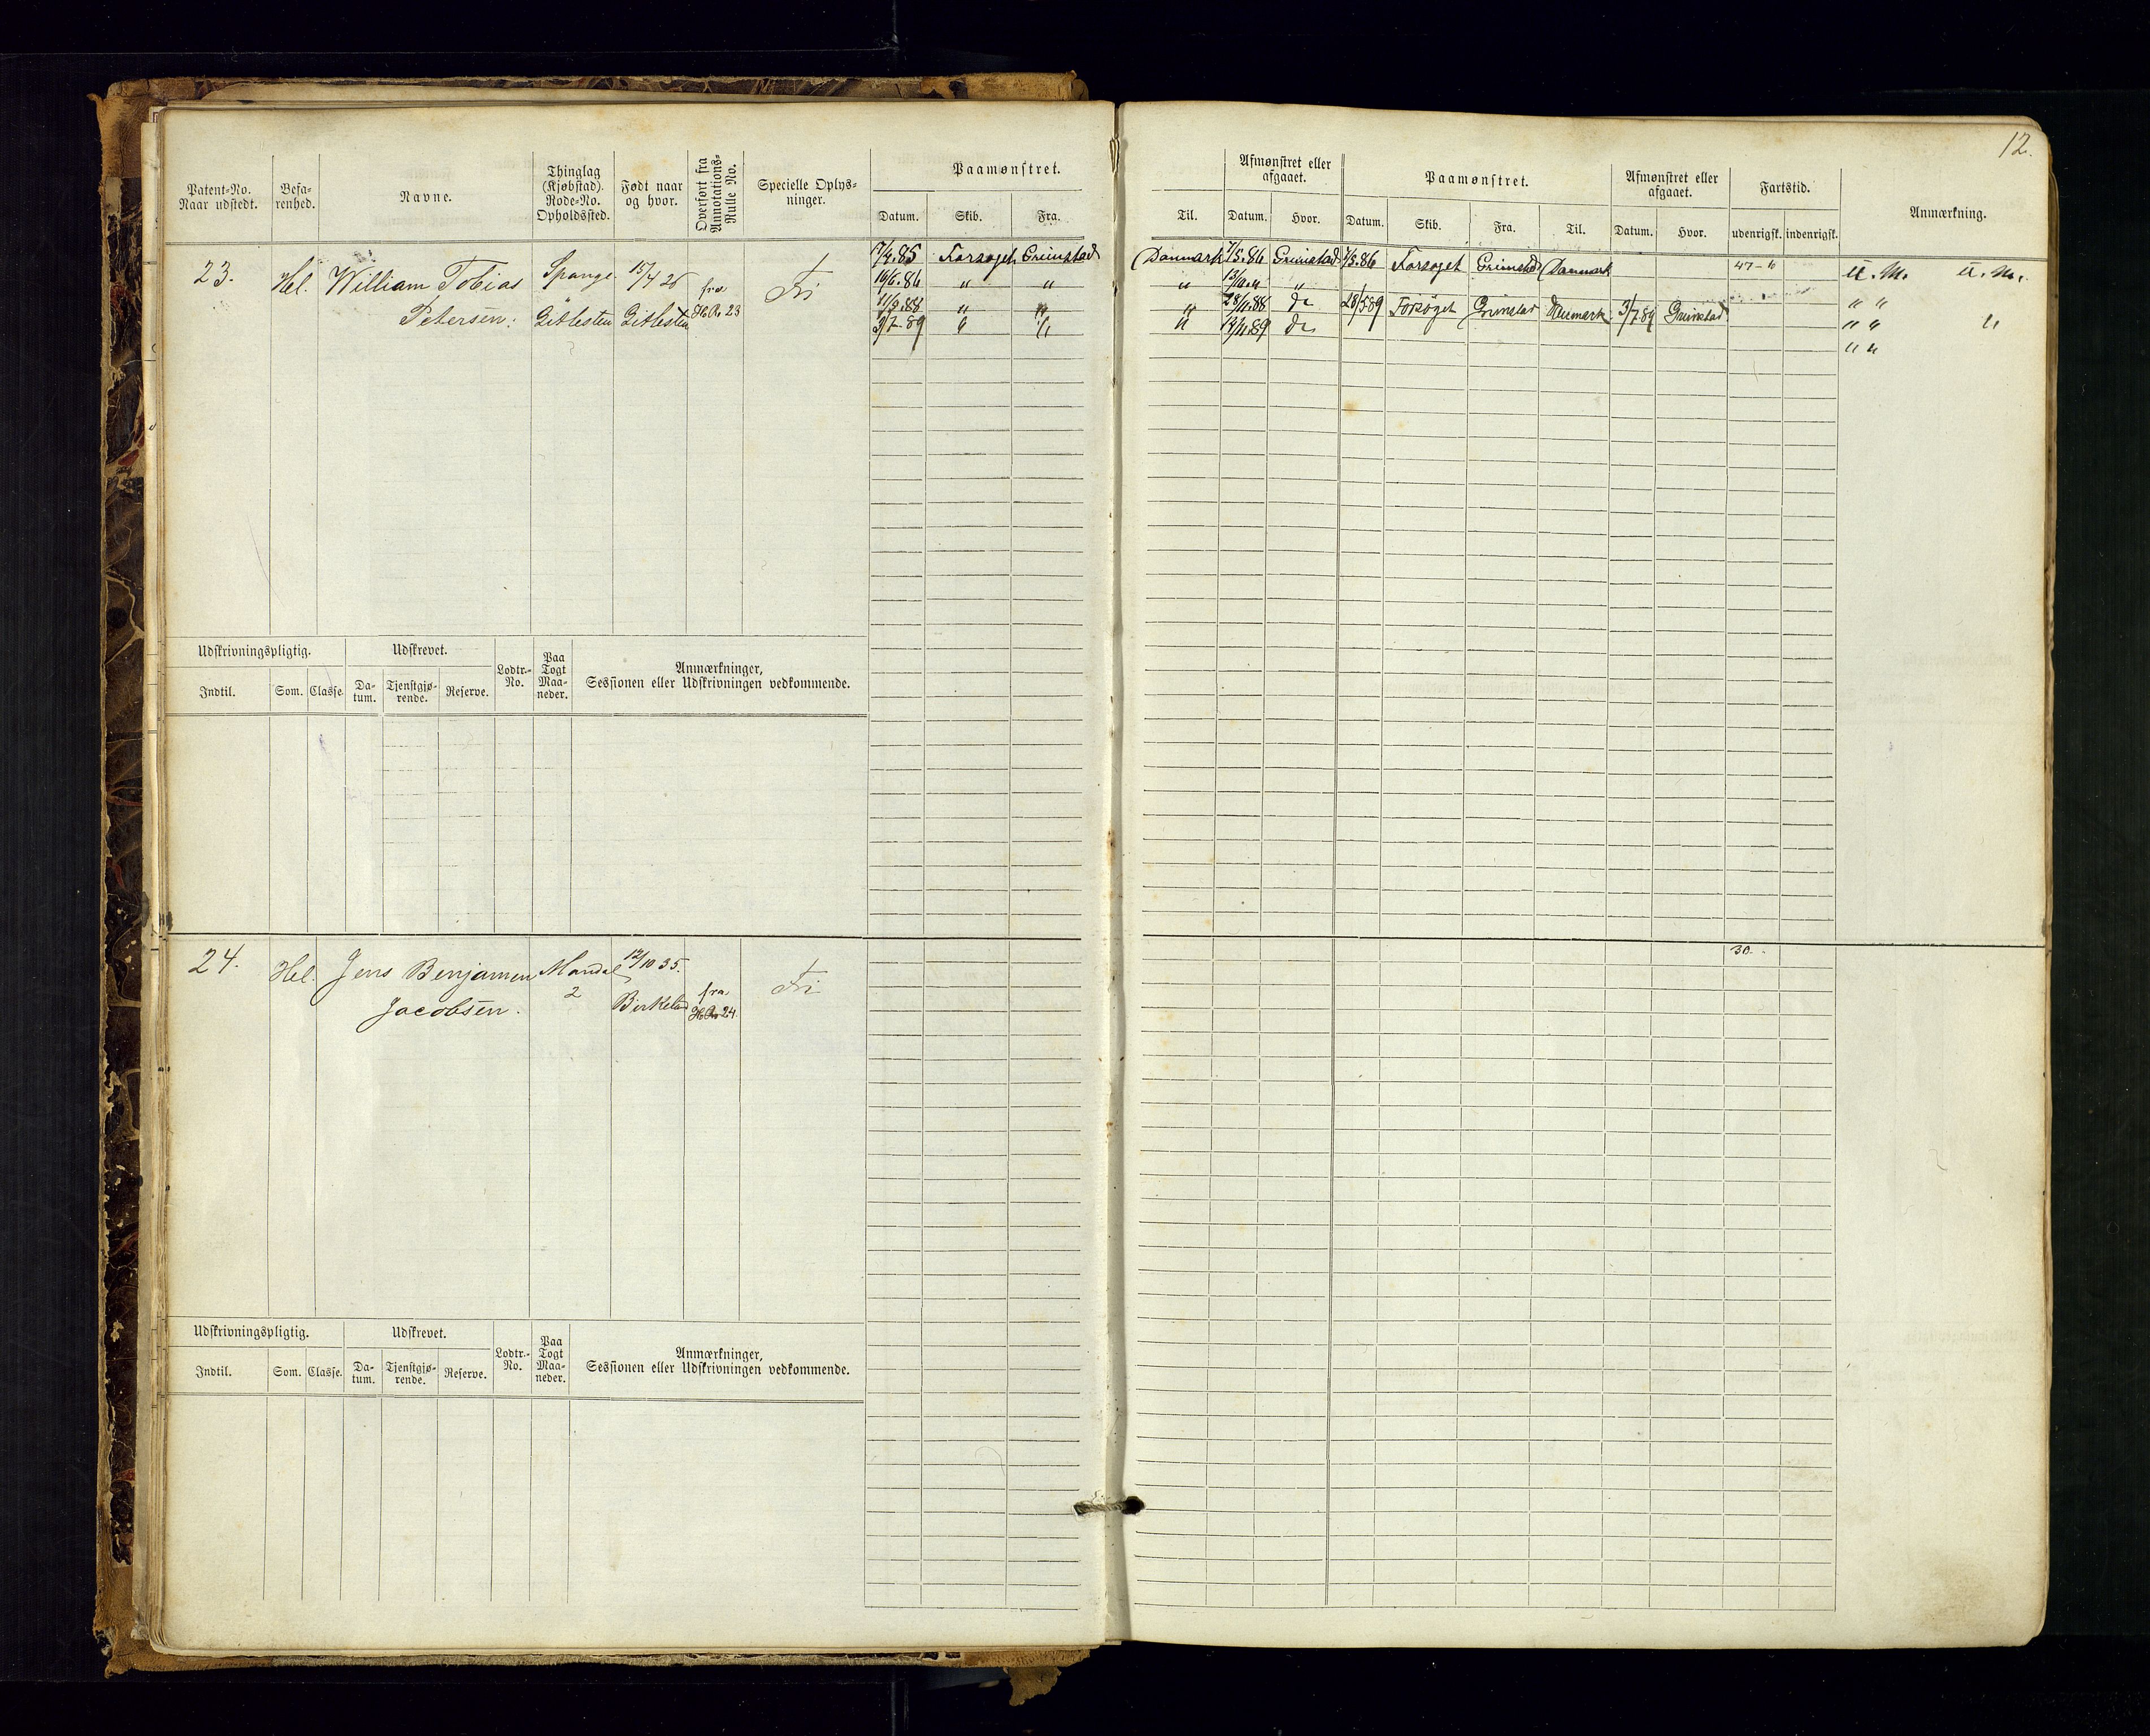 12.
Patent-No. Naar udstedt.
Befa-renhed.
Navne.
Thinglag (Kjøbstad). Rode-No. Opholdssted.
Født naar og hvor.
Overført fra Annotations-Rulle No.
Specielle Oplys-ninger.
Paamønstret.
Datum. Skib. Fra. Til.
Afmønstret eller afgaaet.
Datum. Hvor.
Paamønstret.
Datum. Skib. Fra. Til.
Afmønstret eller afgaaet.
Datum. Hvor.
Fartstid.
udenrigsk. indenrigsk.
Anmærkning.
23. Hel. William Tobias Spange 15/4 26 fra Fri
Petersen. H.R. 23
7/4.85 Forsøget Grimstad Danmark 7/5.86 Grimstad 7/5.86 Forsøget Grimstad Danmark 47-6 U.M. U.M.
19/6.86 " " " "
11/5.88 " " " 28/11.88 do 28/5 89 Forsøget Grimstad Danmark 3/7.89 Grimstad " "
3/7.89 " " " do " " "
" "
Udskrivningspligtig.
Indtil. Som. Classe.
Udskrevet.
Da-tum. Tjenstgjø-rende. Reserve.
Lodtr.-No.
Paa Togt Maa-neder.
Anmærkninger,
Sessionen eller Udskrivningen vedkommende.
24. Hel. Jens Benjamin Mandal 12/10 35. fra Fri 30.
Jacobsen. 2 Birkeland H.R. 24.
Udskrivningspligtig.
Indtil. Som. Classe.
Udskrevet.
Da-tum. Tjenstgjø-rende. Reserve.
Lodtr.-No.
Paa Togt Maa-neder.
Anmærkninger,
Sessionen eller Udskrivningen vedkommende.